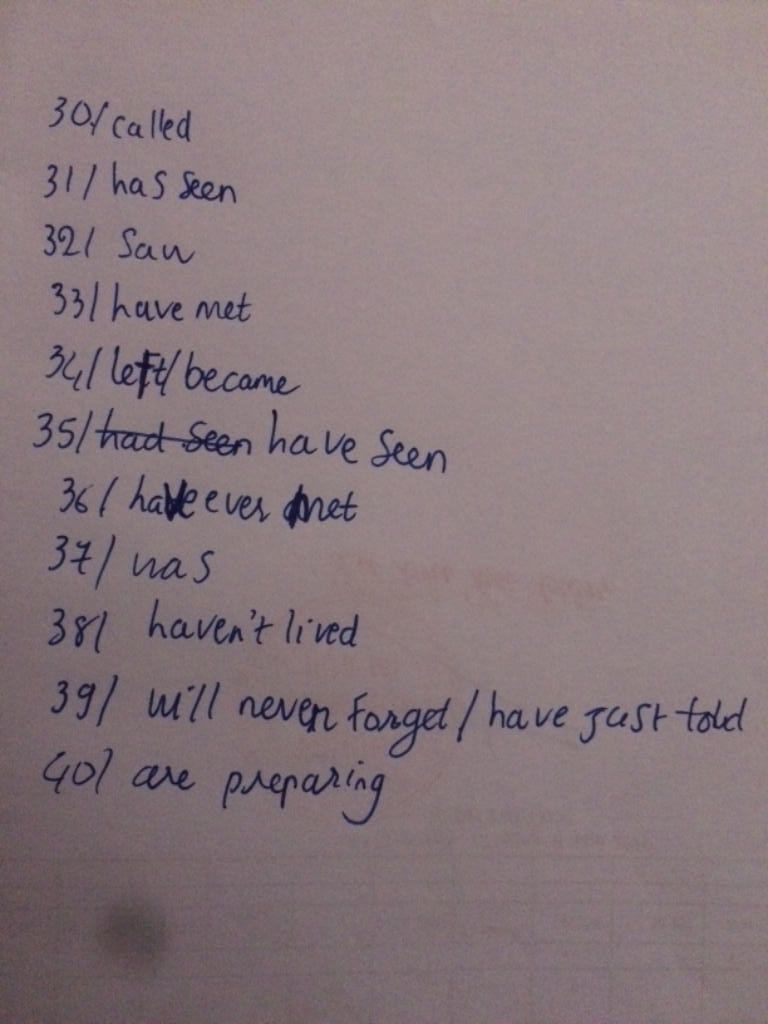 30/ called
31/ has seen
32/ saw
33/ have met
34/ left/became
35/ had seen have seen
36/ have ever met
37/ was
38/ haven't lived
39/ will never forget / have just told
40/ are preparing